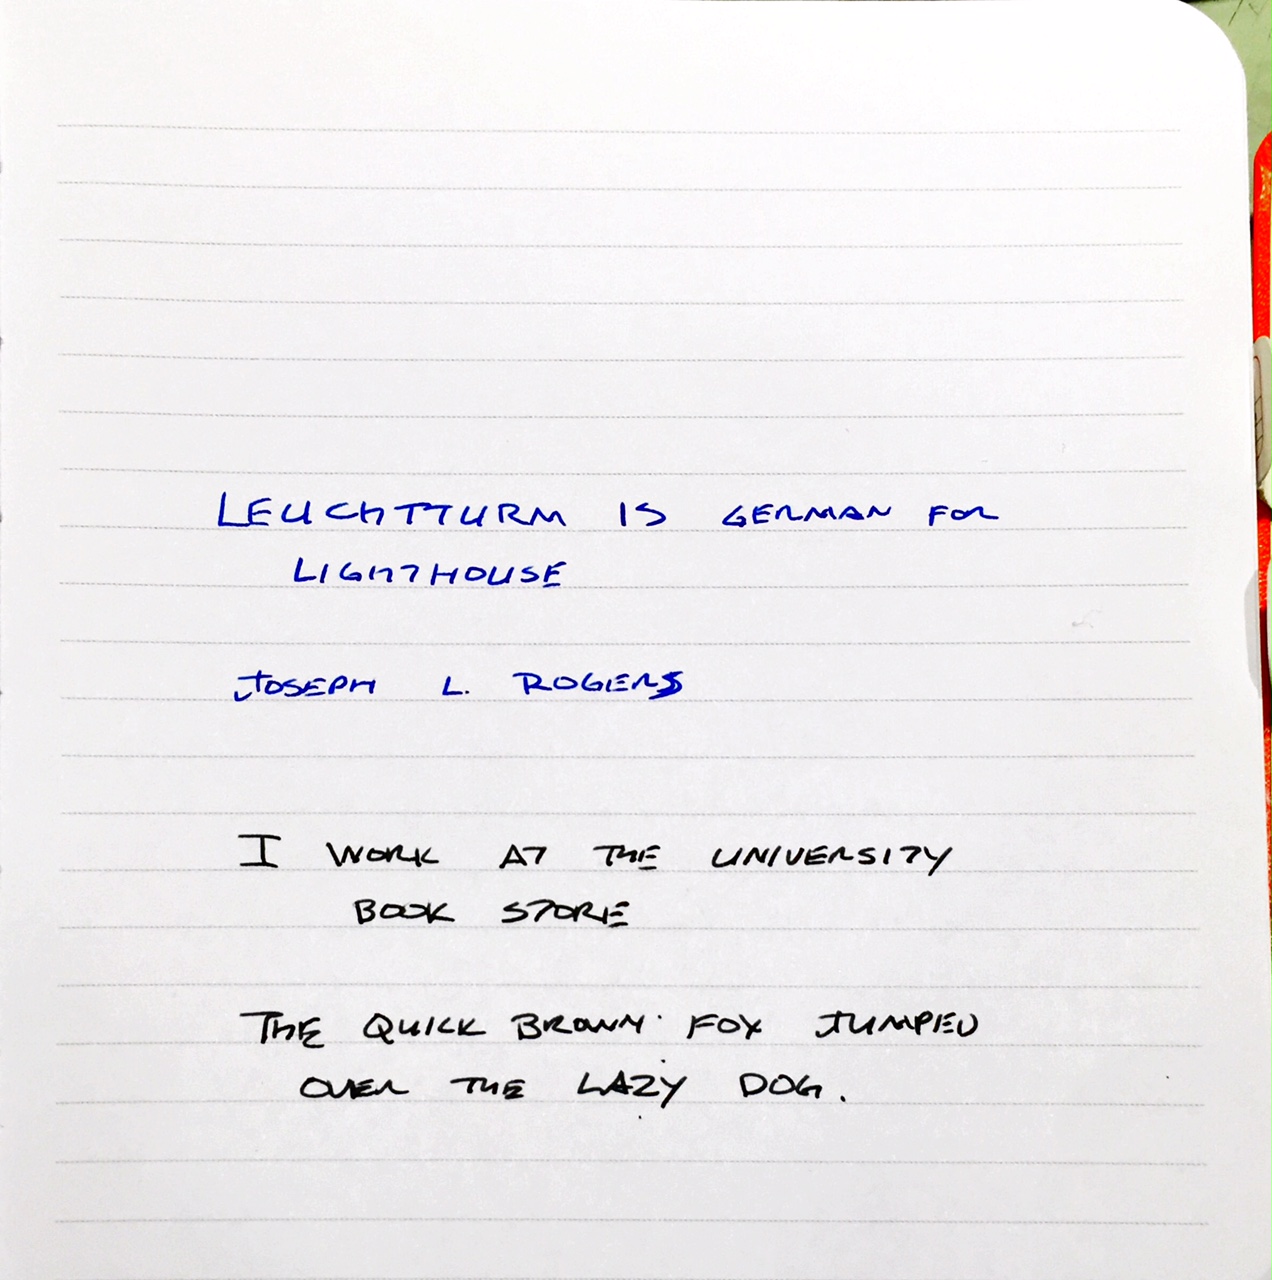 LEUCHTTURM IS GERMAN FOR
LIGHTHOUSE
JOSEPH L. ROGERS
I WORK AT THE UNIVERSITY
BOOK STORE
THE QUICK BROWN FOX JUMPED
OVER THE LAZY DOG.